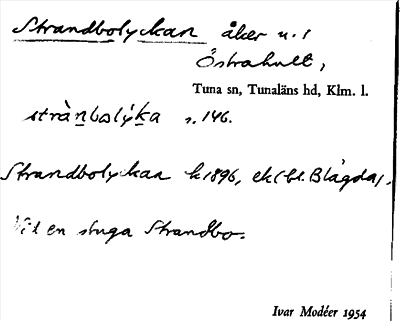 Strandbolyckan åker u. 1
Östrahult,
Tuna sn, Tunaläns hd, Klm. l.
stràn̲bolýk̲a s. 146.
Strandbolyckan k 1896, ek (bl. Blågda).
Vid en stuga Strandbo.
Ivar Modéer 1954